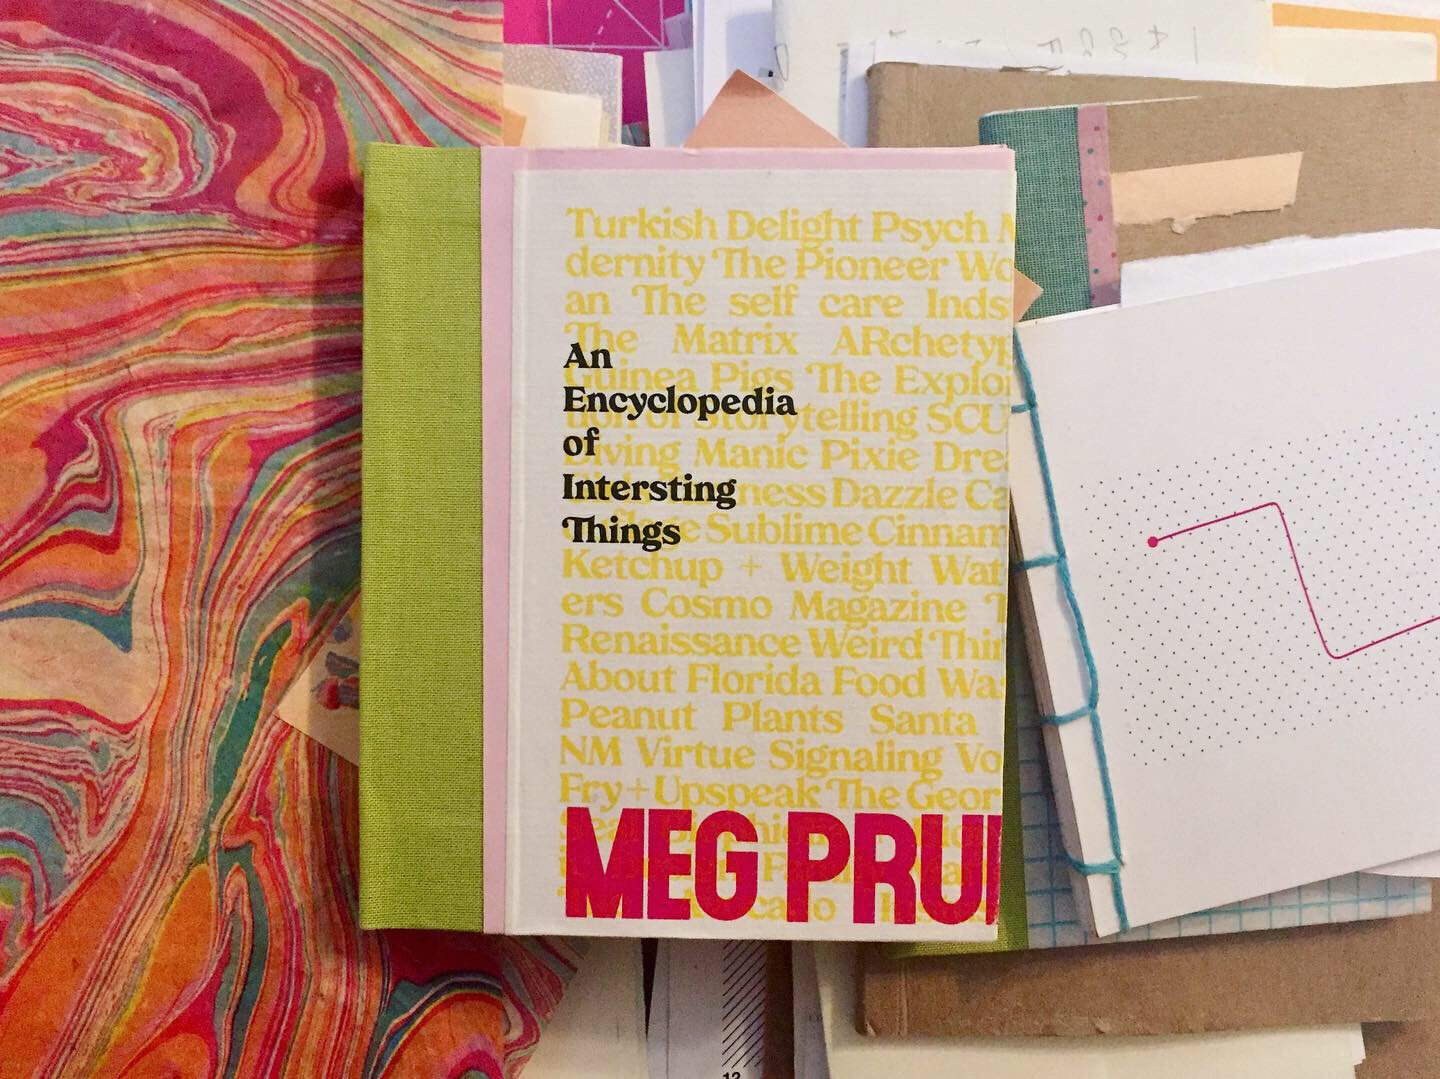 Turkish Delight Psych M
dernity The Pioneer Wo
an The self care Inds
The Matrix ARchetyp
An
Guinea Pigs The Explo
Encyclopedia
Storytelling SCU
of
Diving Manic Pixie Dre
Intersting
ness Dazzle Ca
Things
Sublime Cinnam
Ketchup + Weight Wat
ers Cosmo Magazine T
Renaissance Weird Thin
About Florida Food Wa
Peanut Plants Santa
NM Virtue Signaling Vo
Fry+Upspeak The Geor
MEG PRU
12